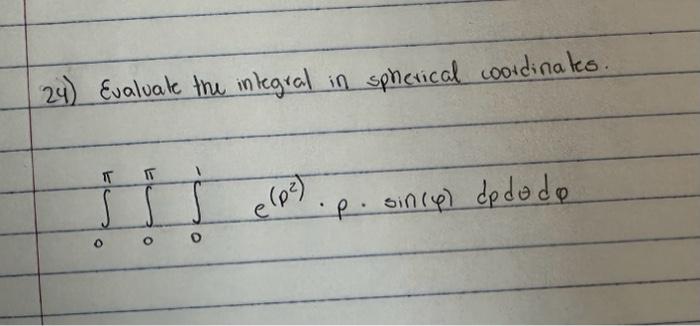 24) Evaluate the integral in spherical coordinates.
∫₀^π ∫₀^π ∫₀^1 e^(ρ²) · ρ · sin(φ) dρ dθ dφ